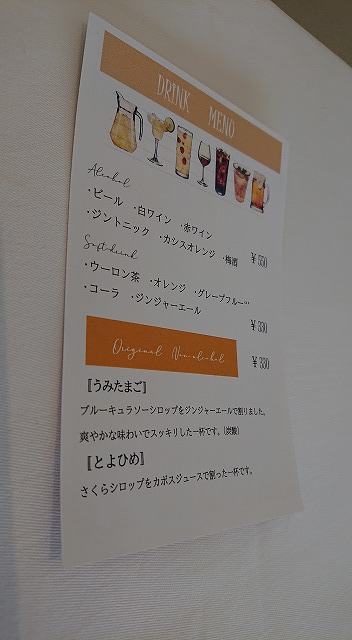 DRINK MENO
Alcohol
・ビール ・白ワイン ・赤ワイン
・ジントニック ・カシスオレンジ ・梅酒
¥550
Soft drink
・ウーロン茶 ・オレンジ ・グレープフルーツ
・コーラ ・ジンジャーエール
¥330
Original Non-alcohol
¥330
〚うみたまご〛
ブルーキュラソーシロップをジンジャーエールで割りました。
爽やかな味わいでスッキリした一杯です。(炭酸)
〚とよひめ〛
さくらシロップをカボスジュースで割った一杯です。